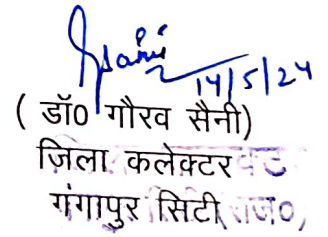 14/5/24
( डॉ0 गौरव सैनी)
ज़िला कलेक्टर
गंगापुर सिटी राज0,